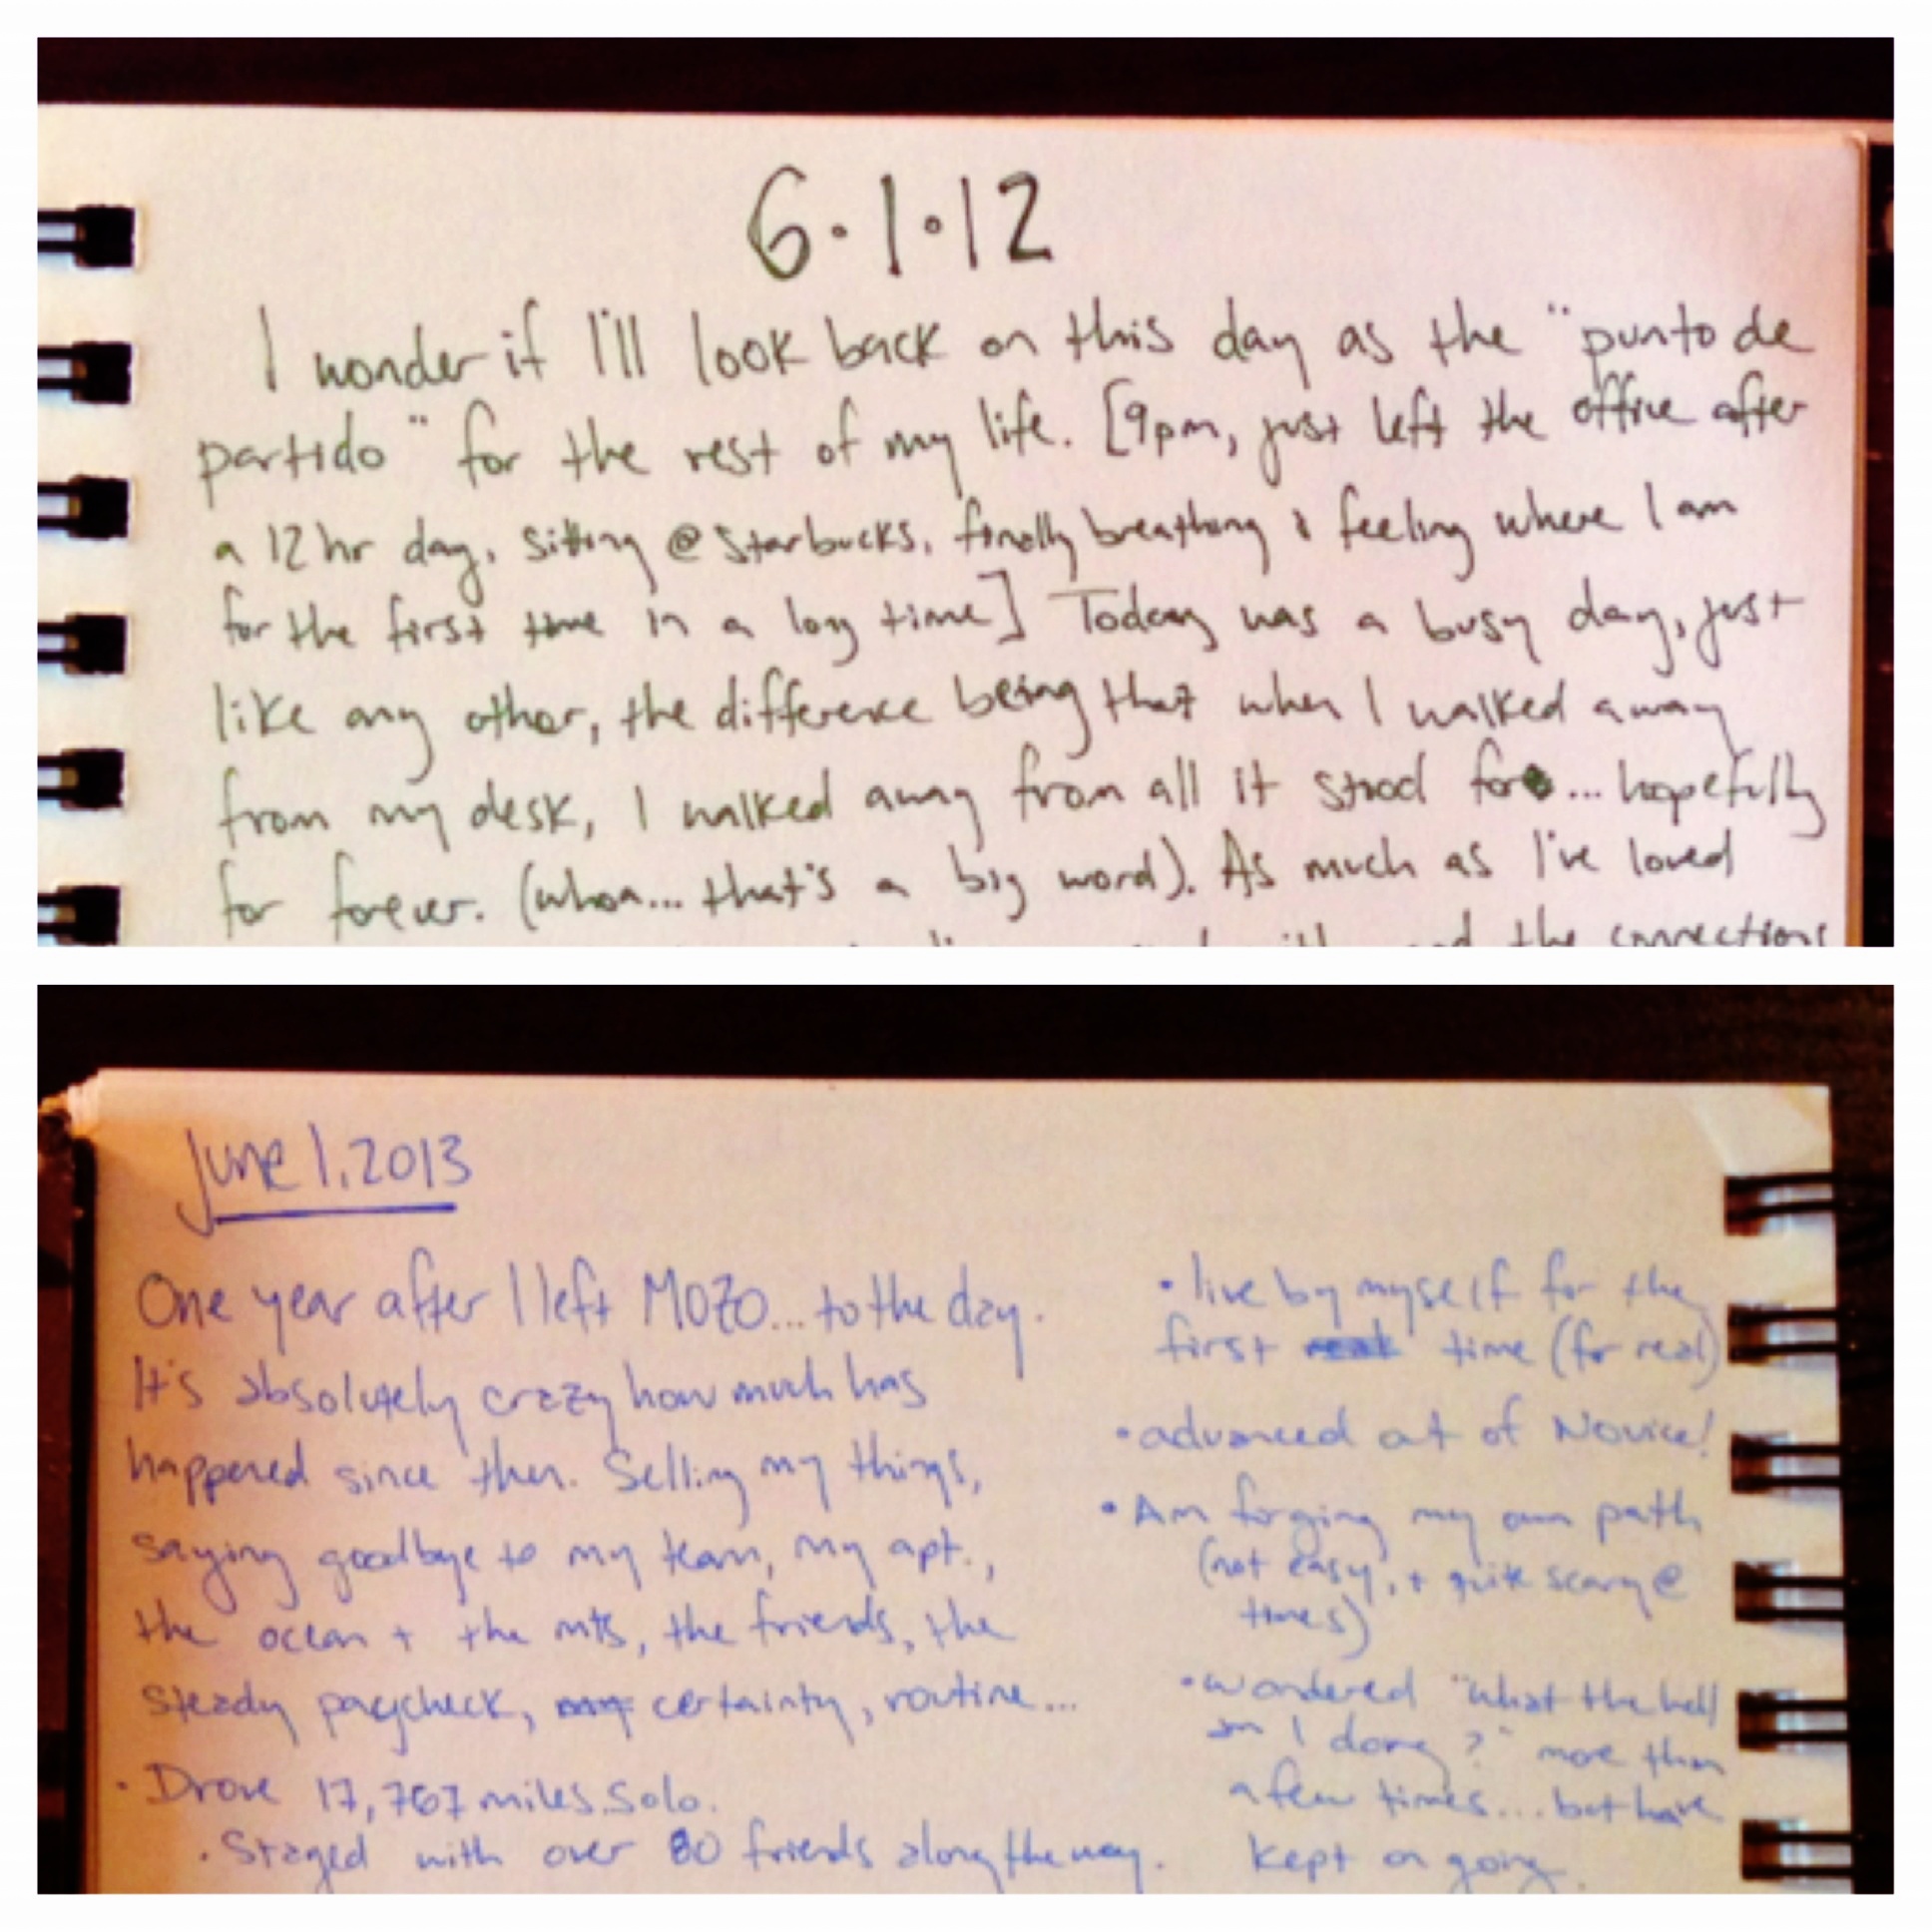 6·1·12
I wonder if I'll look back on this day as the "punto de
partido" for the rest of my life. [9pm, just left the office after
a 12 hr day, sitting @ Starbucks, finally breathing & feeling where I am
for the first time in a long time] Today was a busy day, just
like any other, the difference being that when I walked away
from my desk, I walked away from all it stood for... hopefully
for forever. (whoa... that's a big word). As much as I've loved
the connections
June 1, 2013
One year after I left MOZO... to the day.
It's absolutely crazy how much has
happened since then. Selling my things,
saying goodbye to my team, my apt.,
the ocean + the mts, the friends, the
steady paycheck, certainty, routine...
· Drove 17,767 miles. Solo.
· Stayed with over 80 friends along the way.
· live by myself for the
first time (for real)
· advanced out of Novice!
· Am forging my own path
(not easy, + quite scary @
times)
· wondered "what the hell
am I doing?" more than
a few times... but have
kept on going.